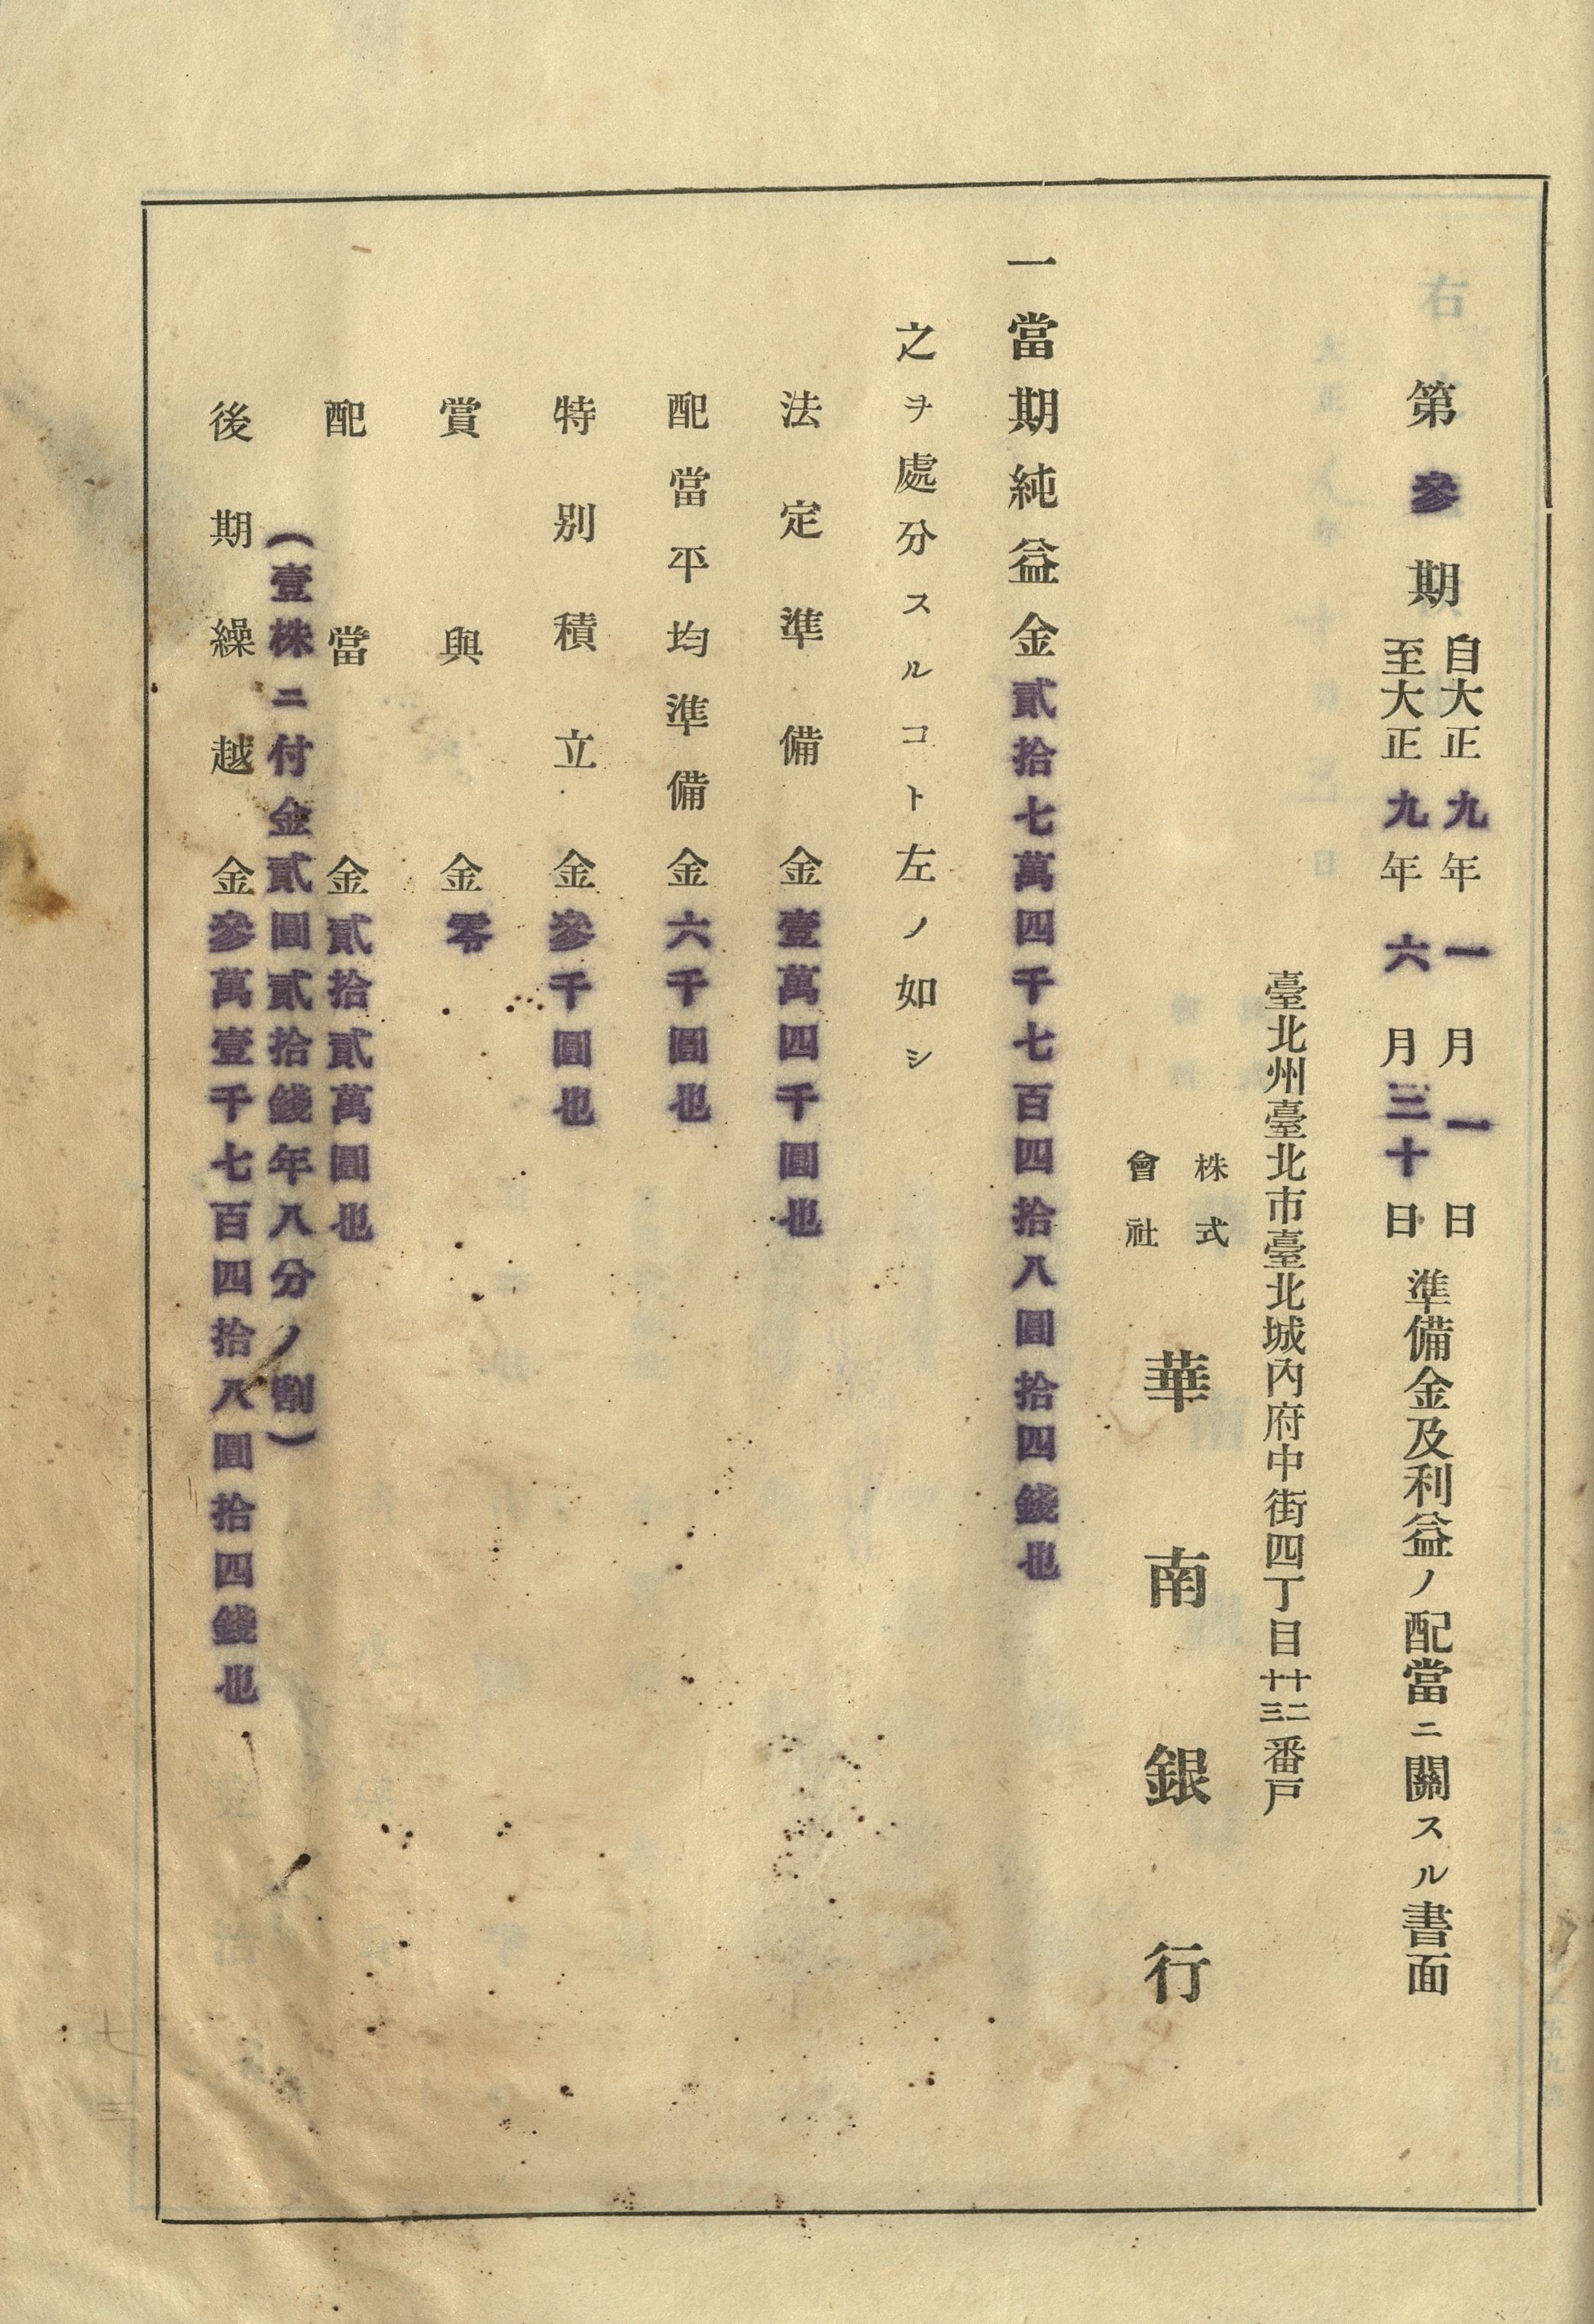 第參期 自大正九年一月一日 至大正九年六月三十日 準備金及利益ノ配當ニ關スル書面
臺北州臺北市臺北城內府中街四丁目十二十三番戶
株式會社 華南銀行
一當期純益金貳拾七萬四千七百四拾八圓拾四錢也
之ヲ處分スルコト左ノ如シ
法定準備金壹萬四千圓也
配當平均準備金六千圓也
特別積立金參千圓也
賞與金零
配當金貳拾貳萬圓也
(壹株ニ付金貳圓貳拾錢年八分ノ割)
後期繰越金參萬壹千七百四拾八圓拾四錢也